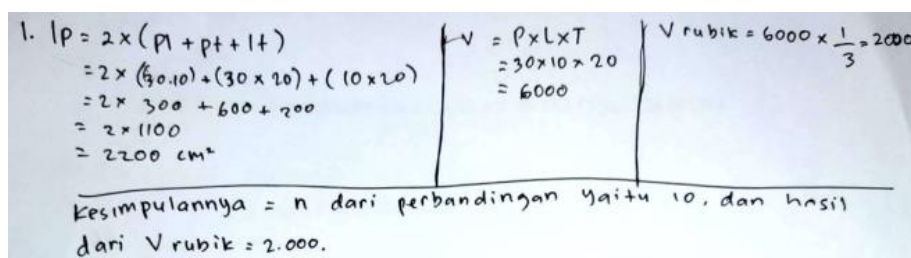 1. lp = 2 x (pl + pt + lt)
= 2 x (30.10) + (30 x 20) + (10 x 20)
= 2 x 300 + 600 + 200
= 2 x 1100
= 2200 cm²
V = P x L x T
= 30 x 10 x 20
= 6000
V rubik = 6000 x 1/3 = 2000
Kesimpulannya = n dari perbandingan yaitu 10, dan hasil
dari V rubik = 2.000.